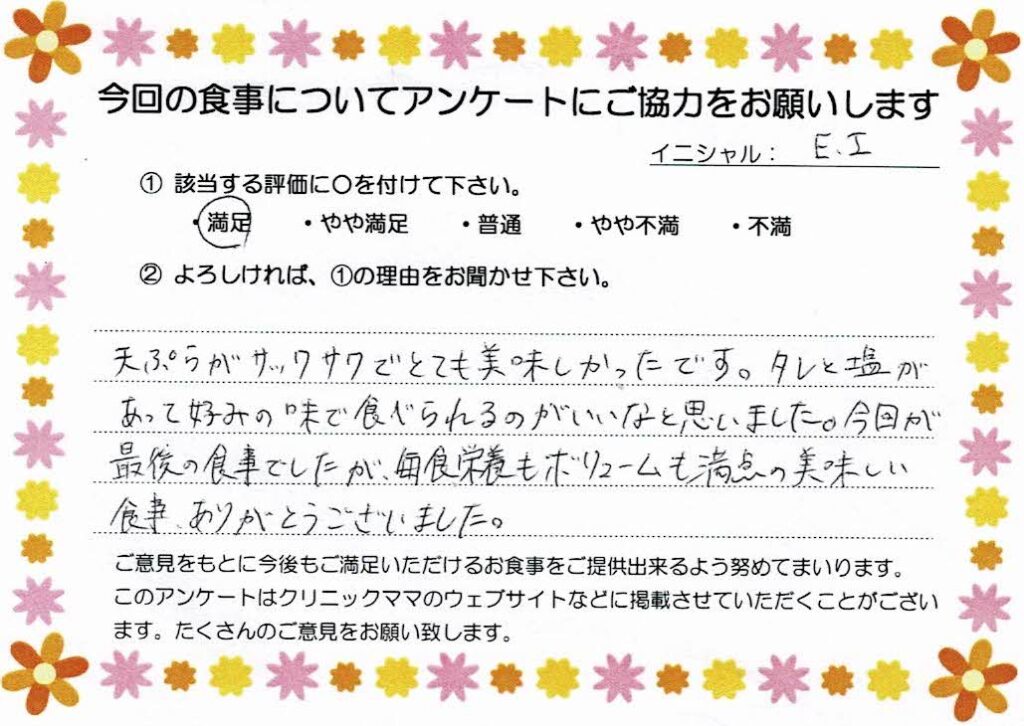 今回の食事についてアンケートにご協力をお願いします
イニシャル： E.I
① 該当する評価に〇を付けて下さい。
・満足 ・やや満足 ・普通 ・やや不満 ・不満
② よろしければ、①の理由をお聞かせ下さい。
天ぷらがサックサクでとても美味しかったです。タレと塩が
あって好みの味で食べられるのがいいなと思いました。今回が
最後の食事でしたが、毎食栄養もボリュームも満点の美味しい
食事、ありがとうございました。
ご意見をもとに今後もご満足いただけるお食事をご提供出来るよう努めてまいります。
このアンケートはクリニックママのウェブサイトなどに掲載させていただくことがござい
ます。たくさんのご意見をお願い致します。